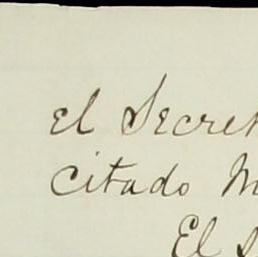 el Secre
citado M
El s